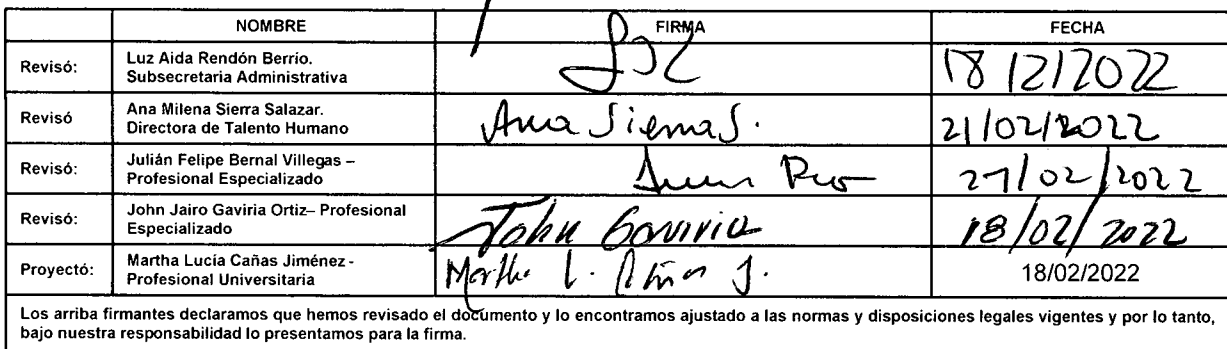 NOMBRE FIRMA FECHA
Revisó: Luz Aida Rendón Berrío.
Subsecretaria Administrativa
18/2/2022
Revisó Ana Milena Sierra Salazar.
Directora de Talento Humano
Ana Sierra S. 21/02/2022
Revisó: Julián Felipe Bernal Villegas –
Profesional Especializado
21/02/2022
Revisó: John Jairo Gaviria Ortiz– Profesional
Especializado
John Gaviria 18/02/2022
Proyectó: Martha Lucía Cañas Jiménez -
Profesional Universitaria
Martha L. Cañas J. 18/02/2022
Los arriba firmantes declaramos que hemos revisado el documento y lo encontramos ajustado a las normas y disposiciones legales vigentes y por lo tanto,
bajo nuestra responsabilidad lo presentamos para la firma.